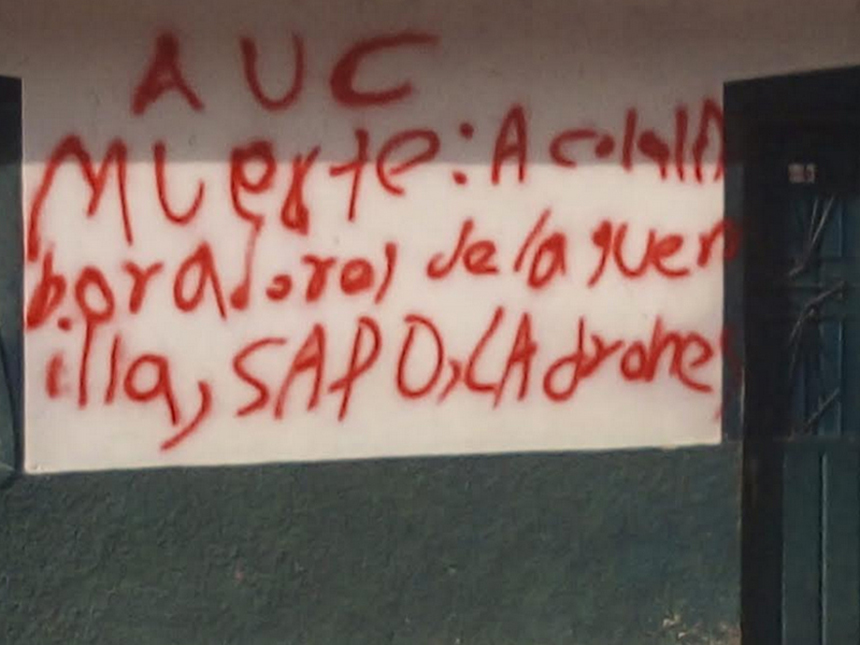 AUC
Muerte: A colall
boradores de la guerr
illa, SAPO, LAdrones